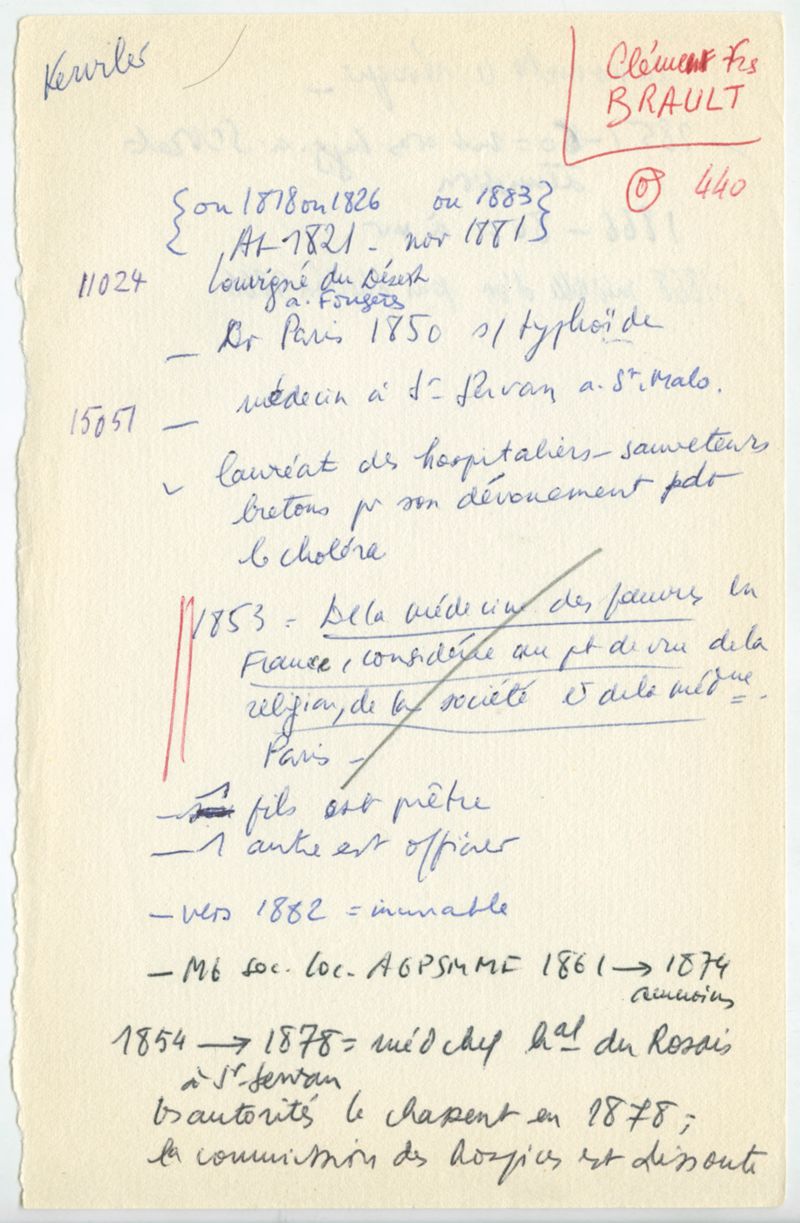 Kerviler
Clément Frs
BRAULT
440
{ou 1818 ou 1826 ou 1883}
1821 - nov 1881}
11024 Louvigné du Désert
a. Fougères
— Dr Paris 1850 s/ typhoïde
15051 — médecin à St Servan a. St. Malo.
lauréat des hospitaliers-sauveteurs
bretons pr son dévouement pdt
le choléra
1853 = De la médecine des pauvres en
France, considérée au pt de vue de la
religion, de la société et de la médne.
Paris —
— 1 fils est prêtre
— 1 autre est officier
— vers 1882 =
— Mb soc. loc. AGPSMMF 1861 → 1874
au moins
1854 → 1878 = méd chef hal du Rosais
à St-Servan
les autorités le chassent en 1878 ;
la commission des hospices est dissoute